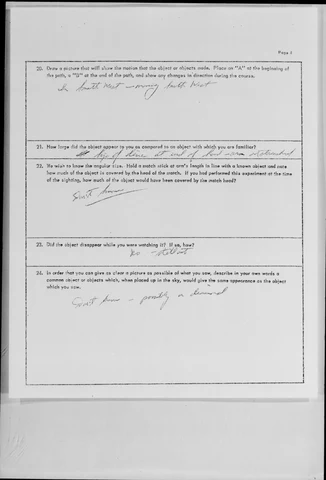 Page 5
20. Draw a picture that will show the motion that the object or objects make. Place an "A" at the beginning of
the path, a "B" at the end of the path, and show any changes in direction during the course.
In South West moving South West
21. How large did the object appear to you as compared to an object with which you are familiar?
size of dime at end of
22. We wish to know the angular size. Hold a match stick at arm's length in line with a known object and note
how much of the object is covered by the head of the match. If you had performed this experiment at the time
of the sighting, how much of the object would have been covered by the match head?
Don't know
23. Did the object disappear while you were watching it? If so, how?
24. In order that you can give as clear a picture as possible of what you saw, describe in your own words a
common object or objects which, when placed up in the sky, would give the same appearance as the object
which you saw.
Don't know - possibly a diamond